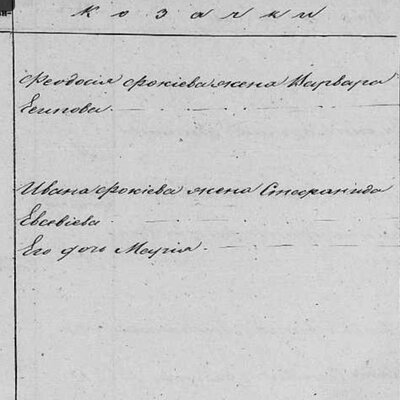 козачки
Феодосія Фокіева жена Варвара
Есипова.
Ивана Фокіева жена Стефанида
Евсевіева
Его дочь Марія